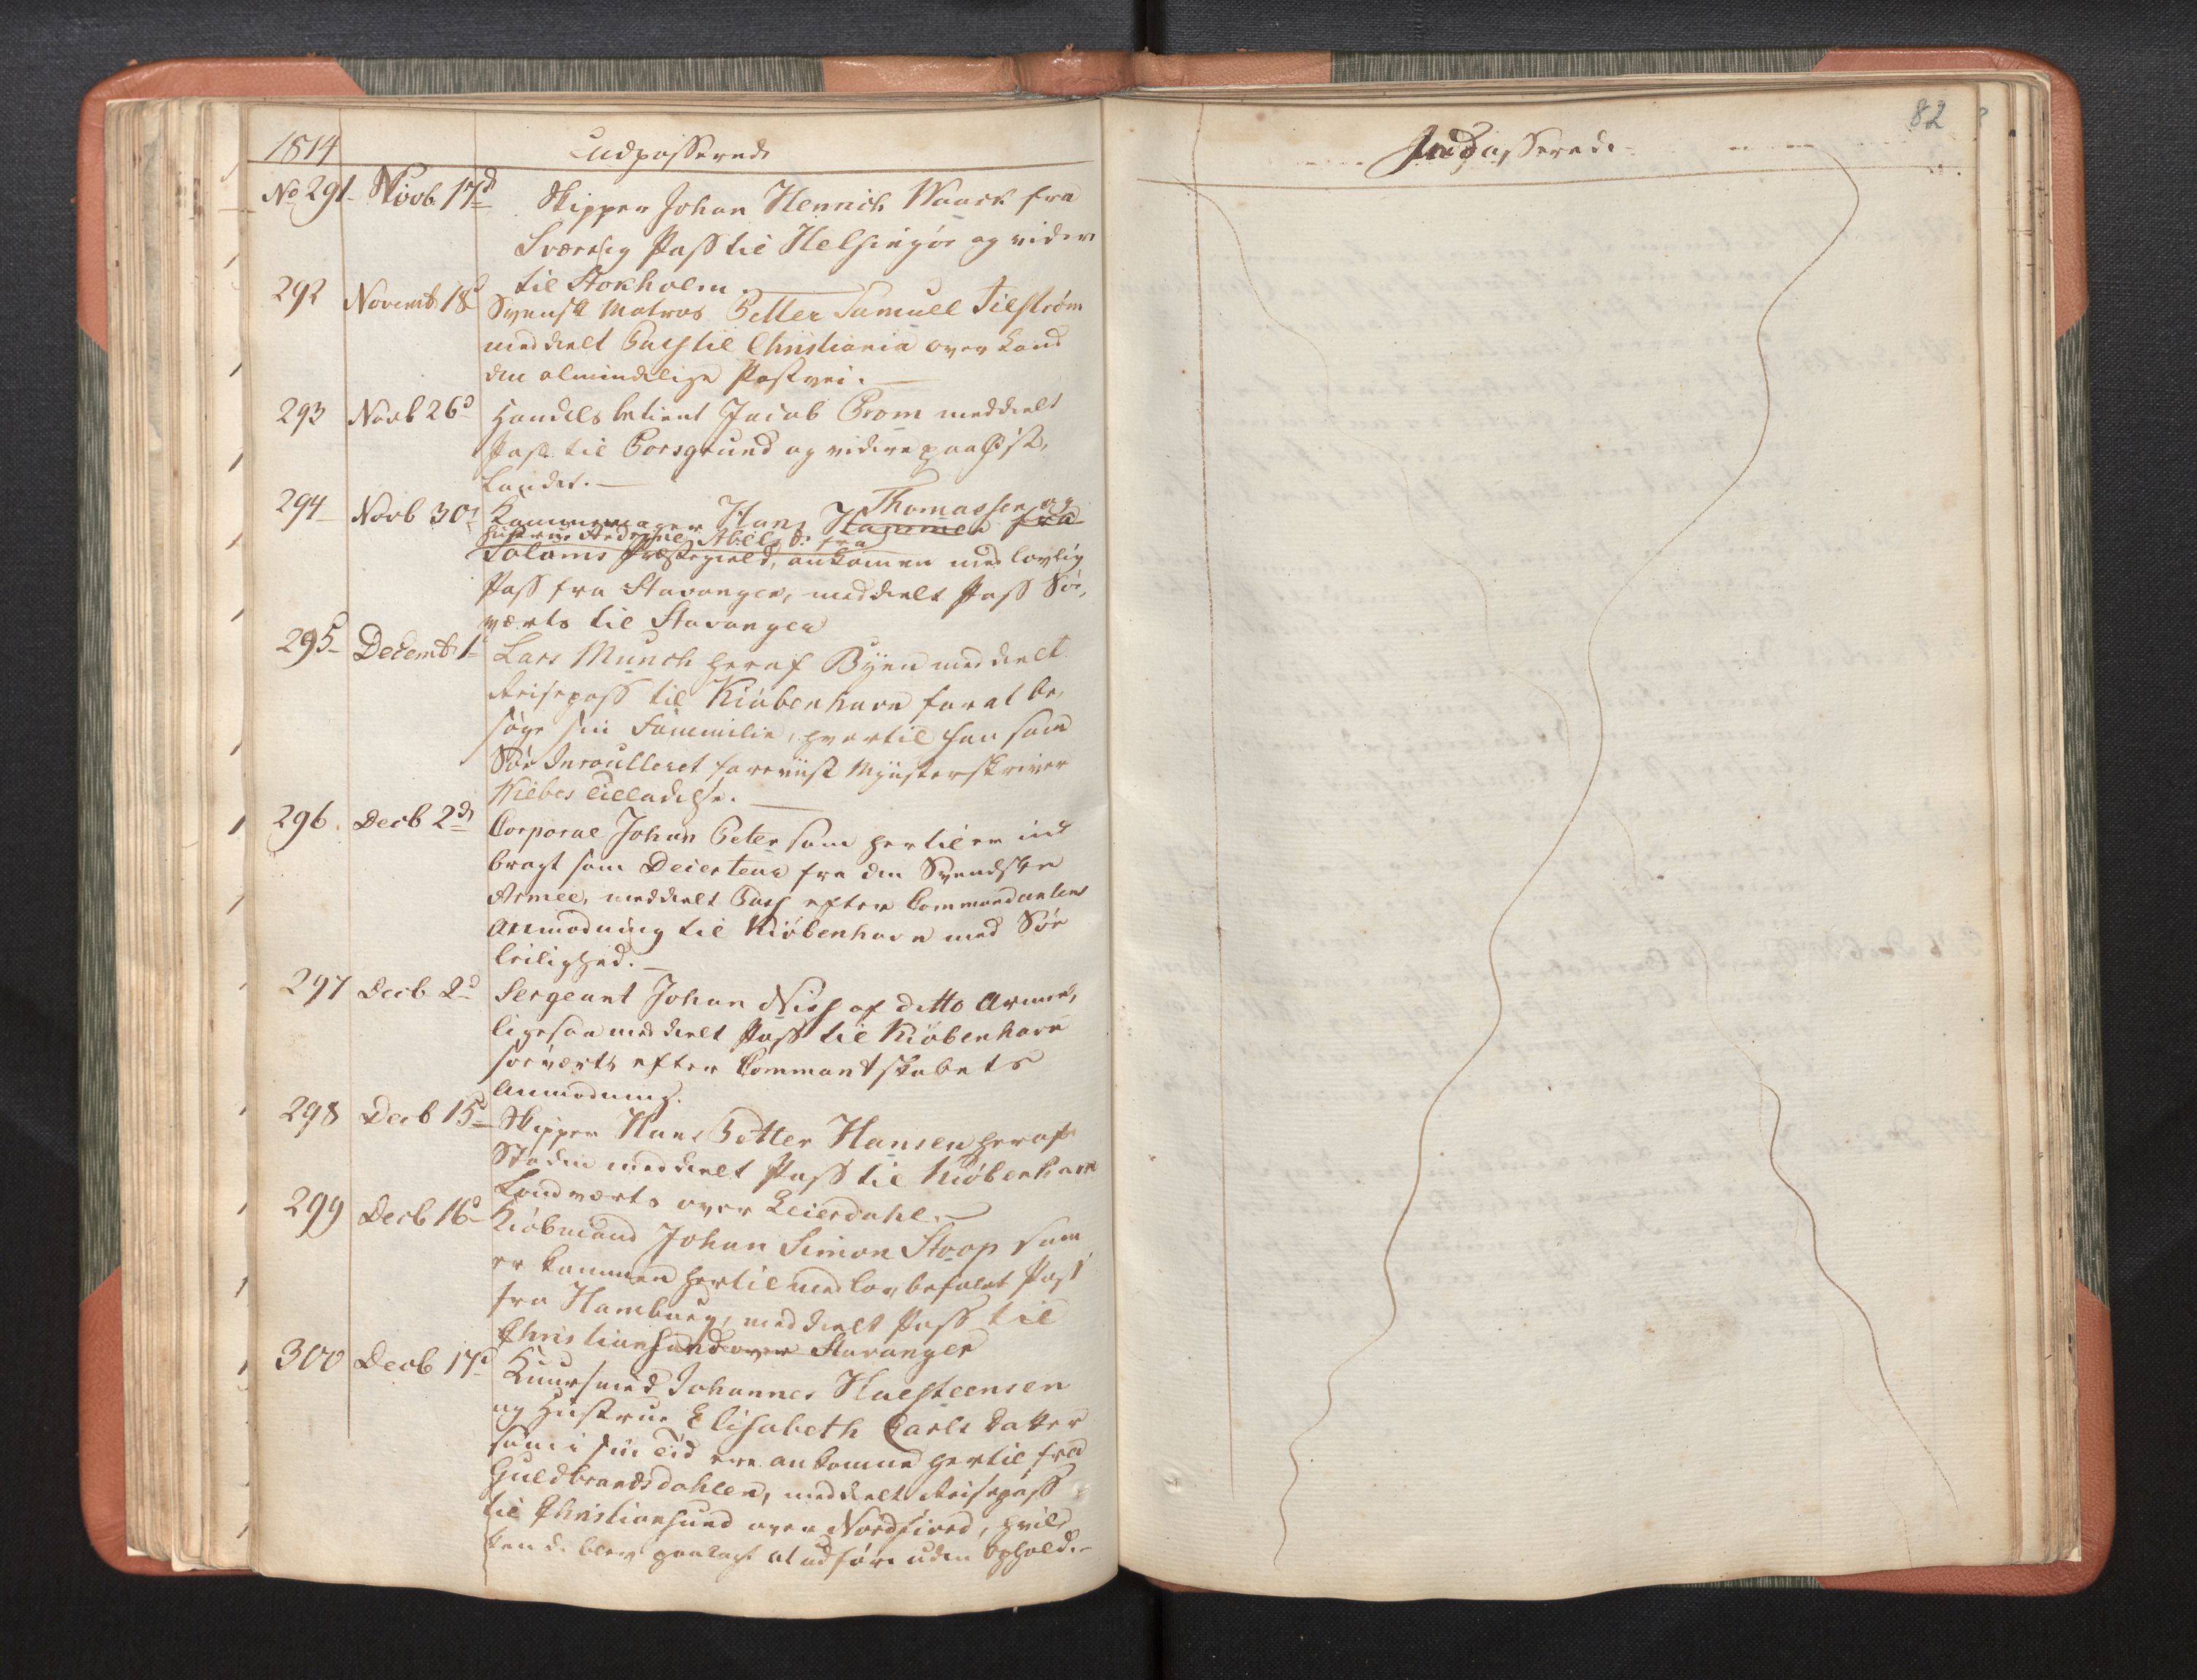 1814 Udpasserede
No 291 Novb 17d Skipper Johan Hennich Waack fra
Sværrig Pass til Helsingör og videre
til Stokholm.
292 Novemb 18d Svensk Matros Petter Samuell Tilström
meddeelt Pass til Christiania over Land
den almindelige Postvei.
293 Novb 26d Handelsbetient Jacob Prom meddeelt
Pass til Porsgrund og videre paa Öst,
Landet.
294 Novb 30d Kammermager Hans Hammer fra Thomassen og
hustrue Abels D: fra
Præstegield, ankommen med lovlig
Pass fra Stavanger, meddeelt Pass Söe,
værts til Stavanger
295 Decemb 1 Lars Munch heraf Byen meddeelt
Reisepass til Kiöbenhavn for at be,
söge sin Fammilie, hvortil han som
Söe Inroulleret foreviist Mynsterskriver
Wilbes Tilladelse.
296 Decb 2d Corporal Johan Peter som hertil er ind
bragt som Deserteur fra den Svendske
Armee, meddeelt Pass efter Commandantens
Anmodning til Kiöbenhavn med Söe
leilighed.
297 Decb 2d Sergeant Johan Niss af ditto Armee,
ligesaa meddeelt Pass til Kiöbenhavn
söeværts efter Commantskabets
Anmodning.
298 Decb 15d Skipper Hans Petter Hansen heraf
Staden meddeelt Pass til Kiöbenhavn
Landværts over Leierdahl.
299 Decb 16d Kiöbmand Johan Simon Stoop som
er kommen hertil med lovbefalet Pass
fra Hamburg, meddeelt Pass til
Christiansand over Stavanger
300 Decb 17d Kuursmed Johannes Halsteensen
og Hustrue Elisabeth Carls Datter
som i sin Tid ere ankomne hertil fra
Guldbrandsdahlen, meddeelt Reisepass
til Christiansund over Nordfiord, hvil,
ken de blev paalagt at udföre uden Ophold.
82
Indpasserede